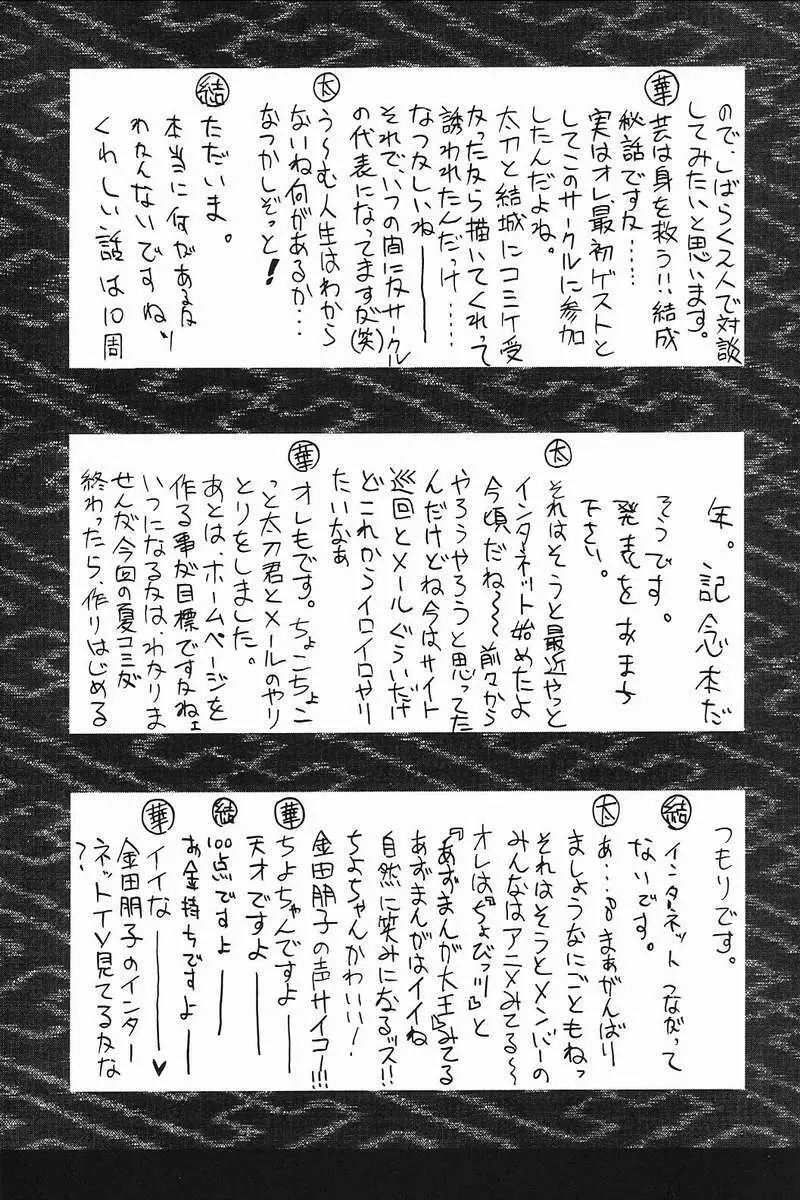 ので、しばらく3人で対談
してみたいと思います。
華 芸は身を救う!!結成
秘話ですな……
実はオレ、最初ゲストと
してこのサークルに参加
したんだよね。
太刀と結城にコミケ受
かったなら描いてくれって
誘われたんだっけ……
なつかしいね――
それで、いつの間にかサークル
の代表になってますが(笑)
太 う～む人生はわから
ないね何があるか…
なつかしぞっと!
結 ただいま。
本当に何があるか
わかんないですね。
くわしい話は10周
年。記念本だ
そうです。
発表をおまち
下さい。
太 それはそうと最近やっと
インターネット始めたよ
今頃だね～～前々から
やろうやろうと思ってた
んだけどね今はサイト
巡回とメールぐらいだけ
どこれからイロイロやり
たいなぁ
華 オレもです。ちょこちょこ
っと太刀君とメールのやり
とりをしました。
あとは、ホームページを
作る事が目標ですかねェ
いつになるかは、わかりま
せんが今回の夏コミが
終わったら、作りはじめる
つもりです。
結 インターネットつながって
ないです。
太 あ…。まぁがんばり
ましょうなにごともねっ
それはそうとメンバーの
みんなはアニメみてる～
オレは『ちょびっツ』と
『あずまんが大王』みてる
あずまんがはイイね
自然に笑みになるッス!!
ちよちゃんかわいい!
金田朋子の声サイコー!!!
華 ちよちゃんですよ――
天才ですよ――
結 100点ですよ――
お金持ちですよ――
華 イイな――♥
金田朋子のインター
ネットTV見てるかな
?